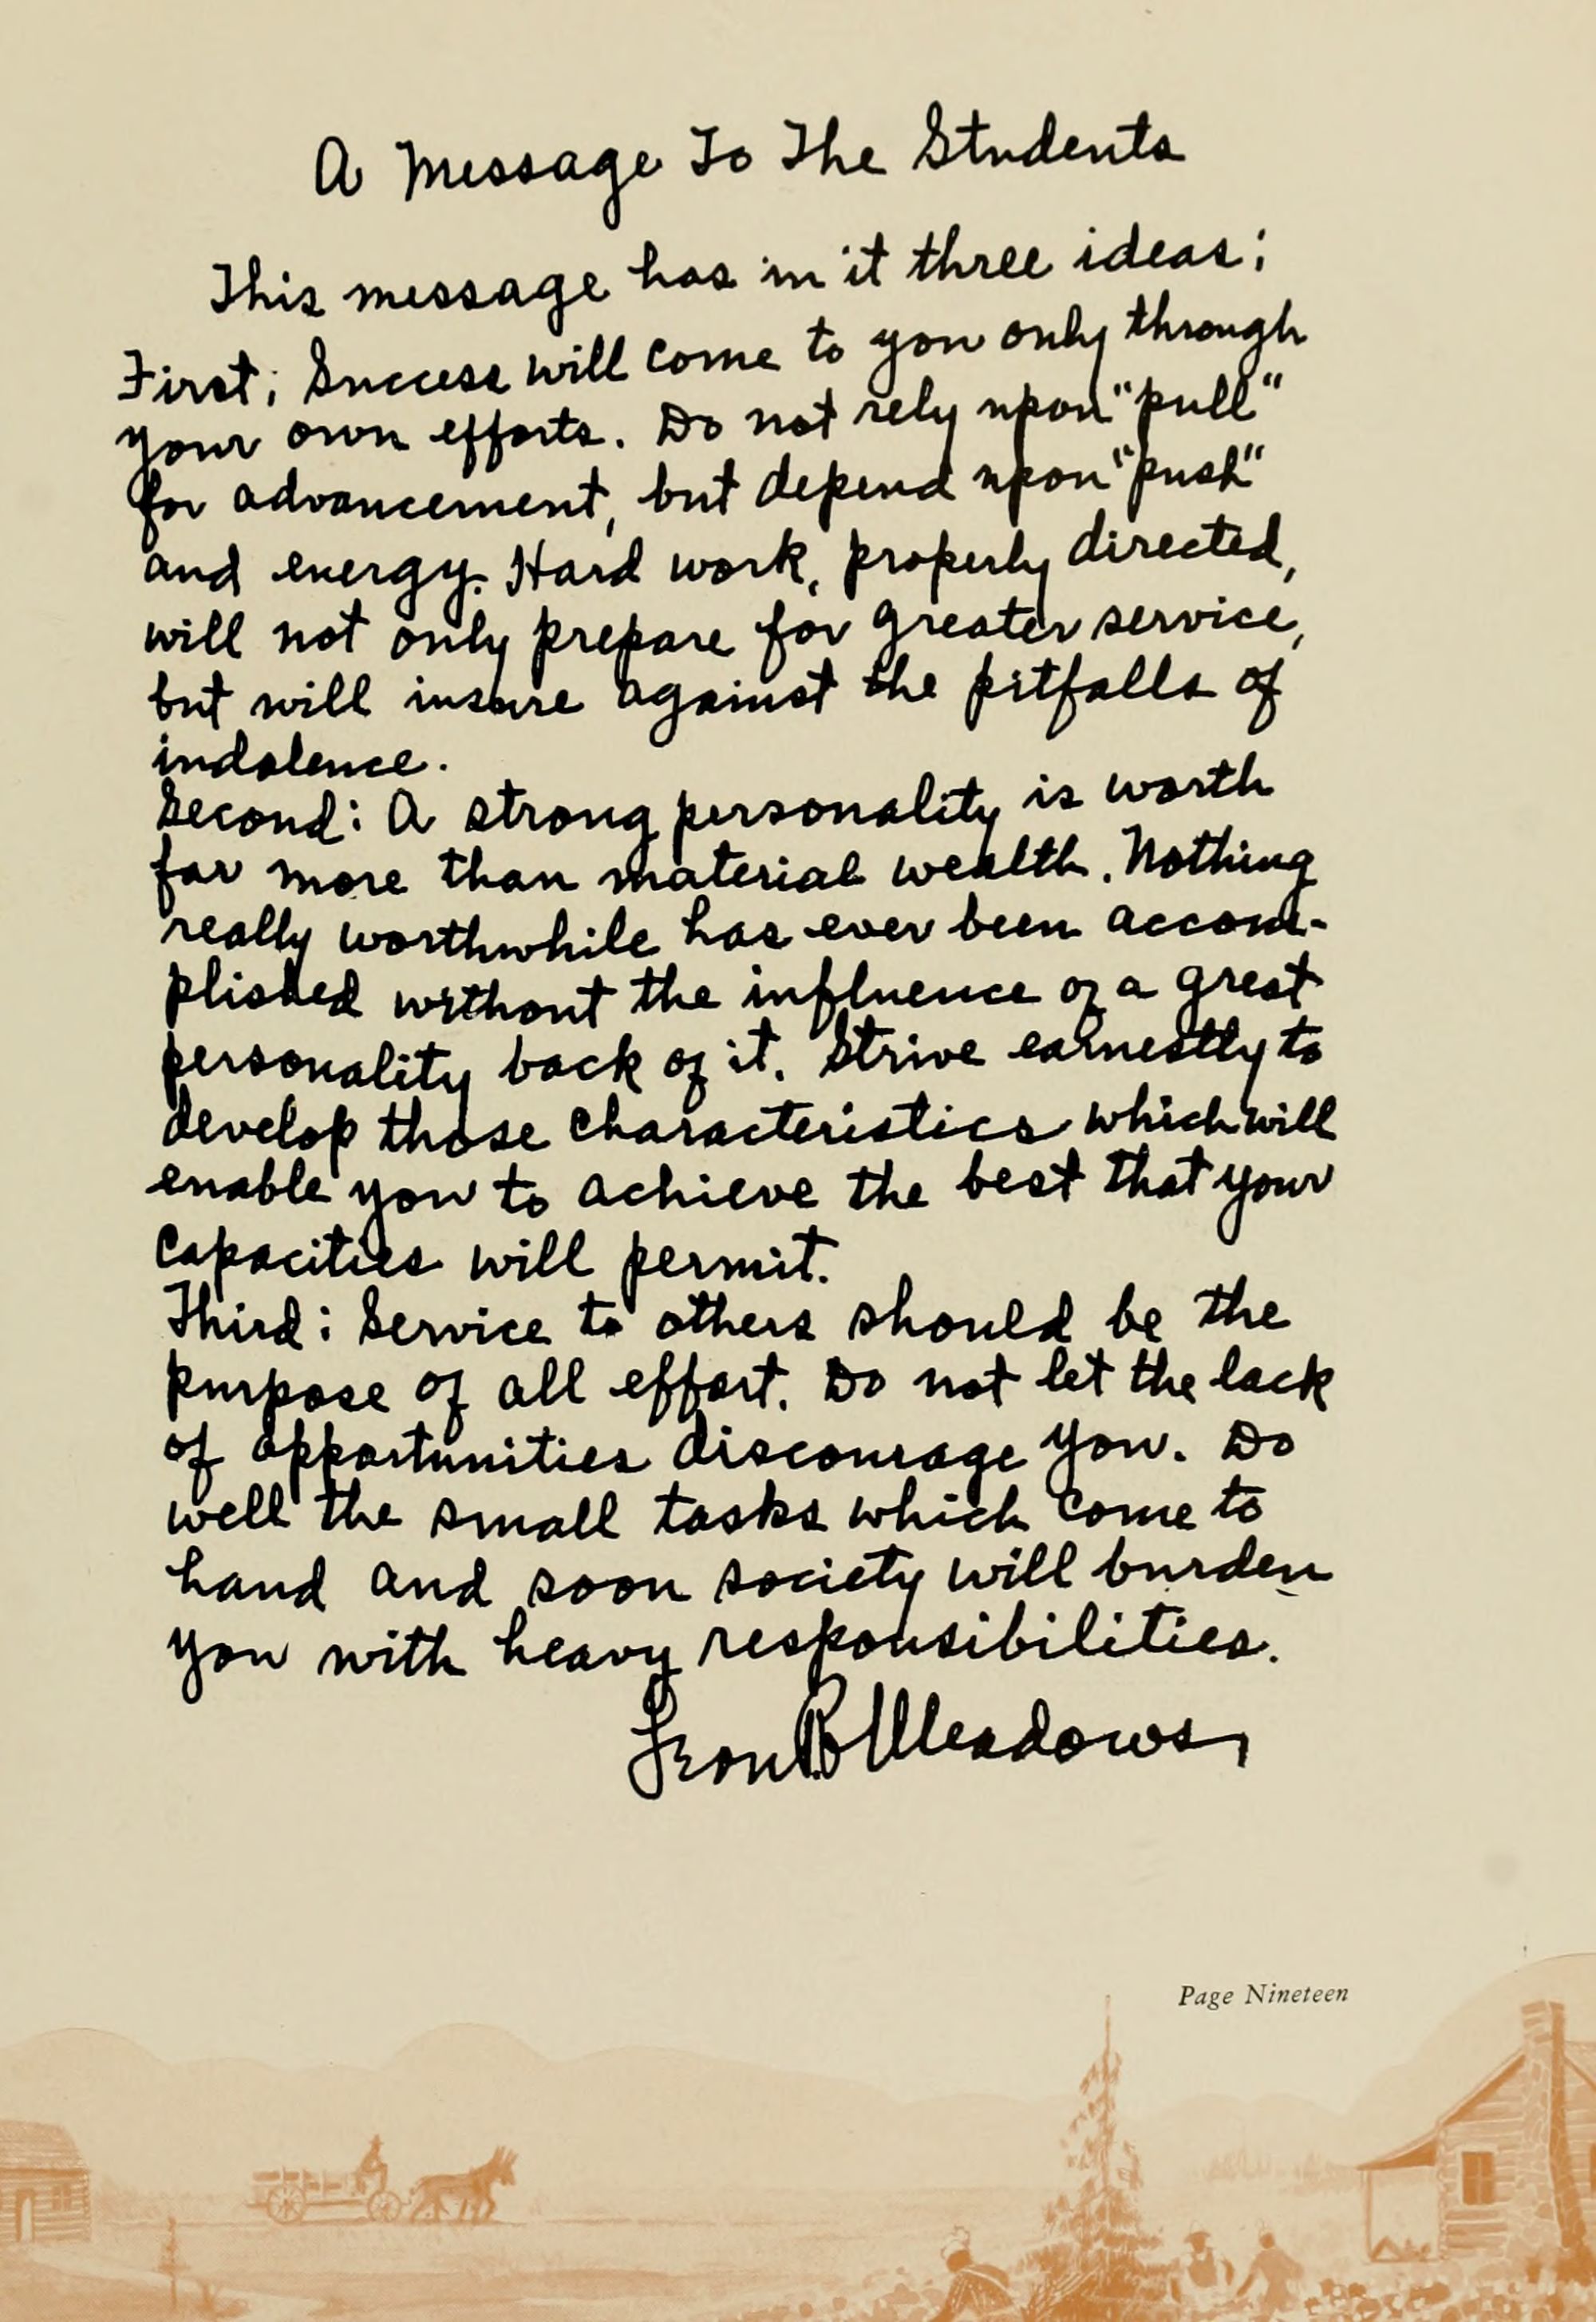 A Message To The Students
This message has in it three ideas:
First: Success will come to you only through
your own efforts. Do not rely upon "pull"
for advancement, but depend upon "push"
and energy. Hard work, properly directed,
will not only prepare for greater service,
but will insure against the pitfalls of
indolence.
Second: A strong personality is worth
far more than material wealth. Nothing
really worthwhile has ever been accom-
plished without the influence of a great
personality back of it. Strive earnestly to
develop those characteristics which will
enable you to achieve the best that your
capacities will permit.
Third: Service to others should be the
purpose of all effort. Do not let the lack
of opportunities discourage you. Do
well the small tasks which come to
hand and soon society will burden
you with heavy responsibilities.
Leon R. Meadows
Page Nineteen